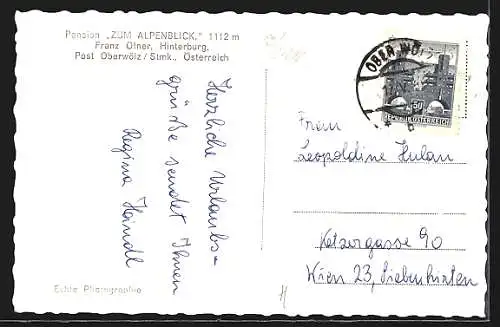 Pension „ZUM ALPENBLICK." 1112 m
Franz Ofner, Hinterburg,
Post Oberwölz/Stmk., Österreich
Herzliche Urlaubs-
grüße sendet Ihnen
Regina Haindl
OBER WÖLZ
50
REPUBLIK ÖSTERREICH
Frau
Leopoldine Hulan
Ketzergasse 90
Wien 23, Siebenhirten
Echte Photographie